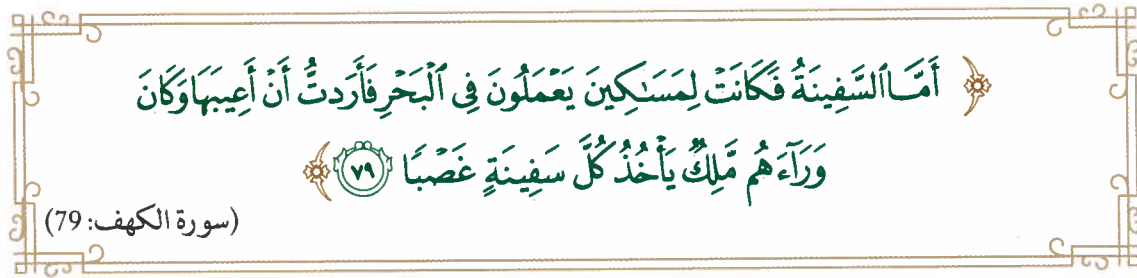 ﴿ أَمَّا ٱلسَّفِينَةُ فَكَانَتْ لِمَسَـٰكِينَ يَعْمَلُونَ فِى ٱلْبَحْرِ فَأَرَدتُّ أَنْ أَعِيبَهَا وَكَانَ
وَرَآءَهُم مَّلِكٌ يَأْخُذُ كُلَّ سَفِينَةٍ غَصْبًا ٧٩ ﴾
(سورة الكهف: 79)